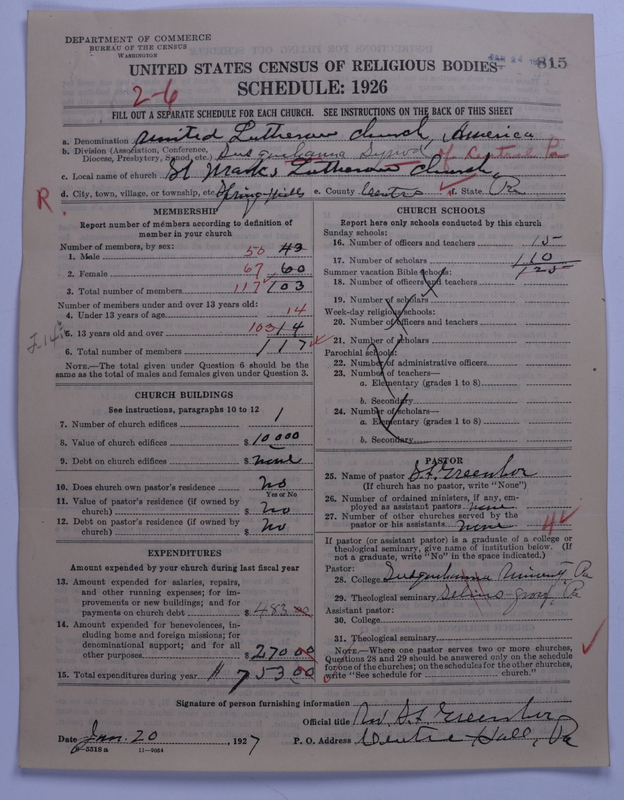 DEPARTMENT OF COMMERCE
BUREAU OF THE CENSUS
WASHINGTON
815
UNITED STATES CENSUS OF RELIGIOUS BODIES
2-6
SCHEDULE: 1926
FILL OUT A SEPARATE SCHEDULE FOR EACH CHURCH. SEE INSTRUCTIONS ON THE BACK OF THIS SHEET
a. Denomination United Lutheran Church, America
b. Division (Association, Conference, Diocese, Presbytery, Synod, etc.) Susquehanna Synod of Central Pa
c. Local name of church St Marks Lutheran Church
R.
d. City, town, village, or township, etc. Spring Mills e. County Centre f. State Pa
MEMBERSHIP
Report number of members according to definition of
member in your church
Number of members, by sex:
1. Male 50 43
2. Female 67 60
3. Total number of members 117 103
Number of members under and over 13 years old:
4. Under 13 years of age 14
5. 13 years old and over 103 14
6. Total number of members 117
NOTE.—The total given under Question 6 should be the
same as the total of males and females given under Question 3.
CHURCH BUILDINGS
See instructions, paragraphs 10 to 12
7. Number of church edifices 1
8. Value of church edifices $ 10000
9. Debt on church edifices $ none
10. Does church own pastor's residence no
Yes or No
11. Value of pastor's residence (if owned by
church) $ no
12. Debt on pastor's residence (if owned by
church) $ no
EXPENDITURES
Amount expended by your church during last fiscal year
13. Amount expended for salaries, repairs,
and other running expenses; for im-
provements or new buildings; and for
payments on church debt $ 483 00
14. Amount expended for benevolences, in-
cluding home and foreign missions; for
denominational support; and for all
other purposes $ 270 00
15. Total expenditures during year $ 753 00
CHURCH SCHOOLS
Report here only schools conducted by this church
Sunday schools:
16. Number of officers and teachers 15
17. Number of scholars 110
125
Summer vacation Bible schools:
18. Number of officers and teachers
19. Number of scholars
Week-day religious schools:
20. Number of officers and teachers
21. Number of scholars
Parochial schools:
22. Number of administrative officers
23. Number of teachers—
a. Elementary (grades 1 to 8)
b. Secondary
24. Number of scholars—
a. Elementary (grades 1 to 8)
b. Secondary
PASTOR
25. Name of pastor
(If church has no pastor, write "None")
26. Number of ordained ministers, if any, em-
ployed as assistant pastors none
27. Number of other churches served by the
pastor or his assistants none 4
If pastor (or assistant pastor) is a graduate of a college or
theological seminary, give name of institution below. (If
not a graduate, write "No" in the space indicated.)
Pastor:
28. College Susquehanna Pa
29. Theological seminary Selins-grove, Pa
Assistant pastor:
30. College
31. Theological seminary
NOTE.—Where one pastor serves two or more churches,
Questions 28 and 29 should be answered only on the schedule
for one of the churches; on the schedules for the other churches,
write "See schedule for church."
Signature of person furnishing information
Official title
Date Jan. 20, 1927 P. O. Address Centre Hall, Pa
6-5518a 11-9054